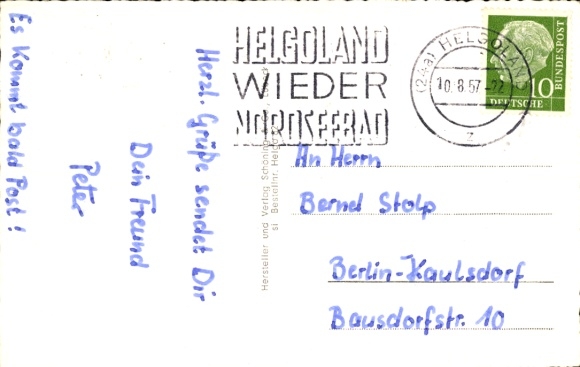 Herzl. Grüße sendet Dir
Dein Freund
Peter
Es kommt bald Post!
HELGOLAND
WIEDER
NORDSEEBAD
(24a) HELGOLAND
10.8.57-22
z
DEUTSCHE
BUNDESPOST
10
Hersteller und Verlag Schöning
An Herrn
Bernd Stolp
Berlin-Kaulsdorf
Bausdorfstr. 10